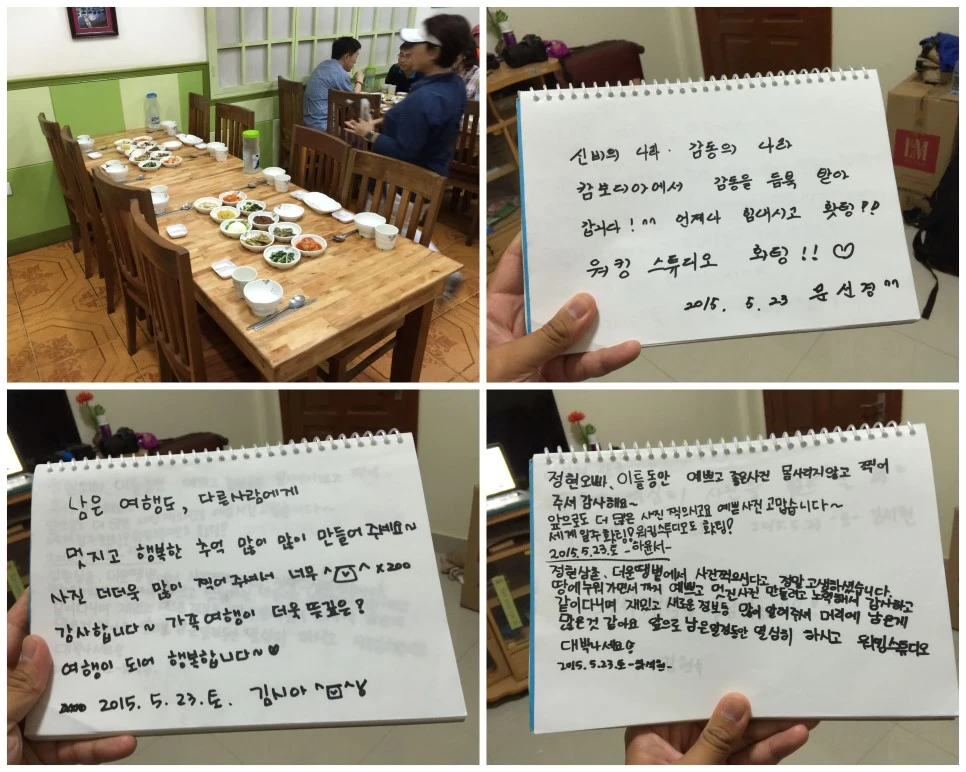 신비의 나라. 감동의 나라
캄보디아에서 감동을 듬뿍 받아
갑니다! ^^ 언제나 힘내시고 홧팅!!
워킹 스튜디오 화팅!! ♡
2015. 5. 23 윤선경^^
남은 여행도, 다른사람에게
멋지고 행복한 추억 많이 많이 만들어 주세요~
사진 더더욱 많이 찍어주셔서 너무 ^ㅁ^ x200
감사합니다~ 가족여행이 더욱 뜻깊은?
여행이 되어 행복합니다~♡
2015. 5. 23. 토. 김시아 ^ㅁ^
정현오빠, 이틀동안 예쁘고 좋은사진 몸사리지않고 찍어
주서 감사해요~
앞으로도 더 많은 사진 찍으시고요 예쁜사진 고맙습니다~
세계일주화팅! 워킹스튜디오도 화팅!
2015. 5. 23. 토 -하윤서-
정현삼촌, 더운땡볕에서 사진찍으신다고, 정말고생하셨습니다.
땅에누워가면서 까지 예쁘고 멋진사진 만들려고 노력해서 감사하고
같이다니며 재밌고 새로운정보등 많이 알려주서 머리에 남은게
많은것 같아요 앞으로 남은일정동안 열심히 하시고 워킹스튜디오
대박나세요!
2015. 5. 23. 토